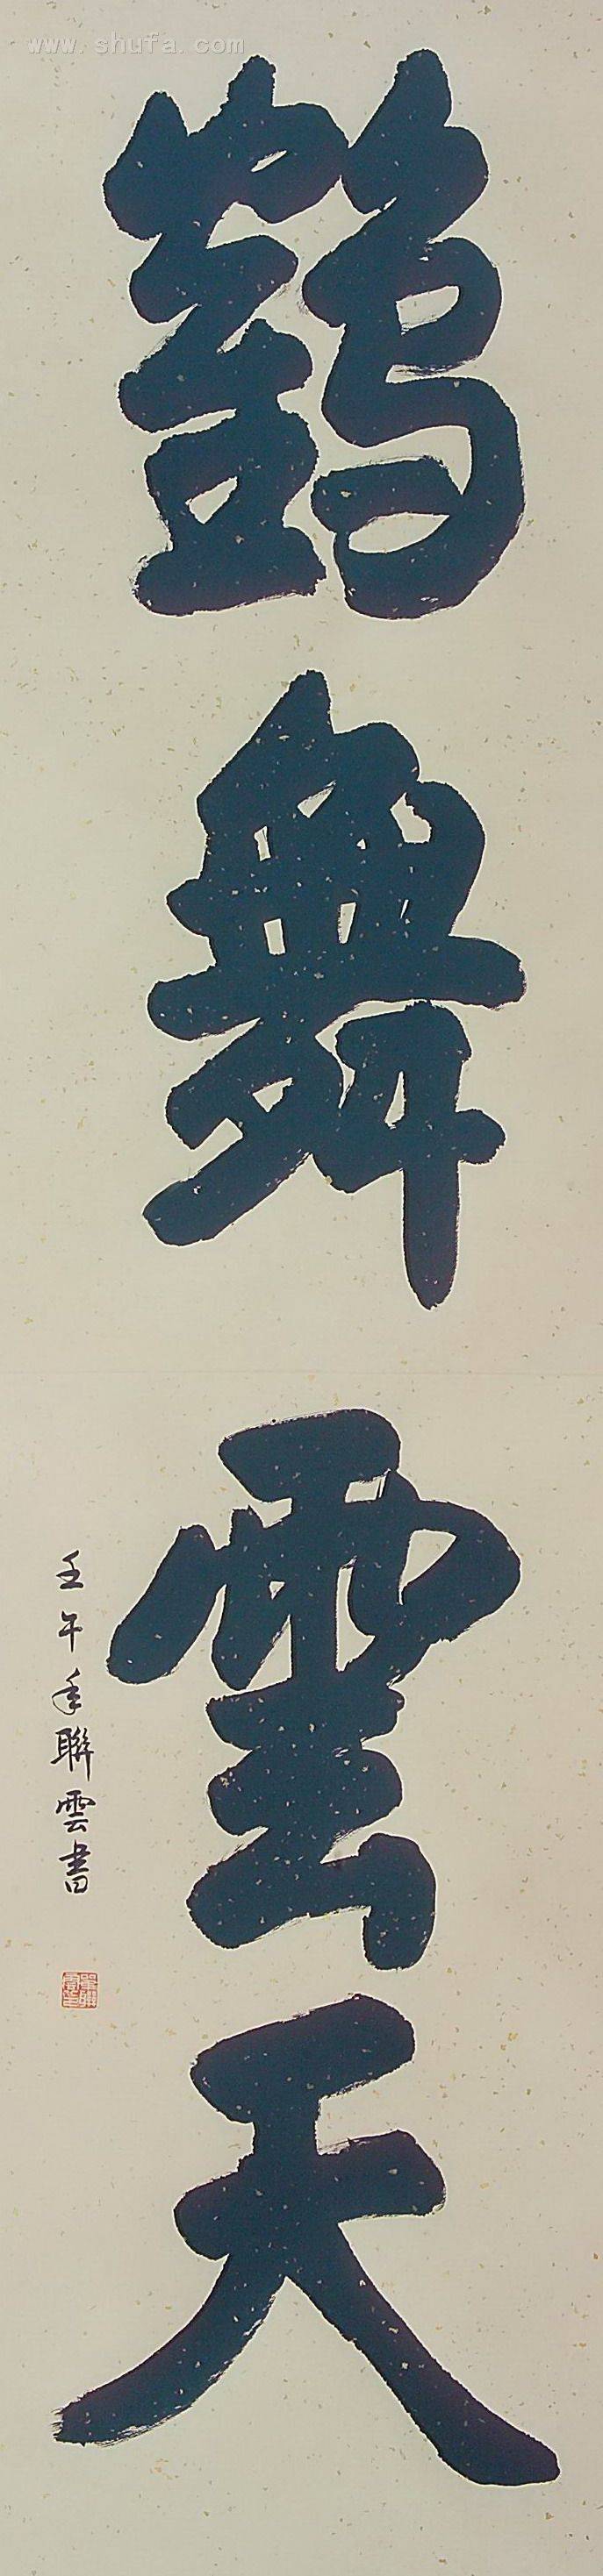 www.shufa.com
鶴舞雲天
壬午年聯雲書